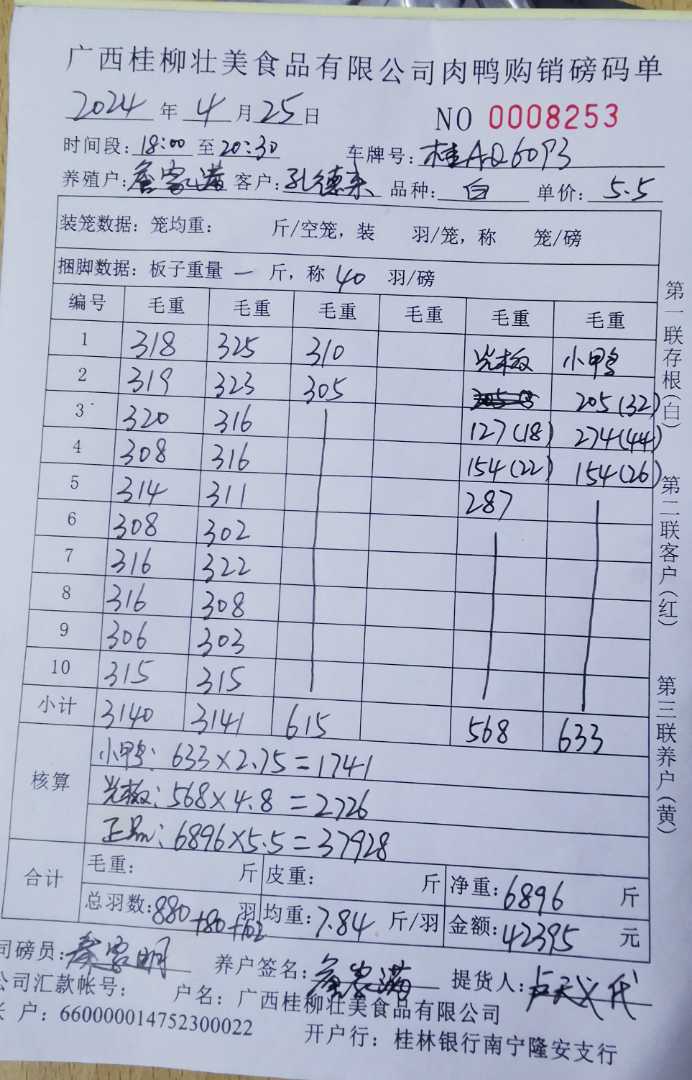 广西桂柳壮美食品有限公司肉鸭购销磅码单
2024 年 4 月 25 日 NO 0008253
时间段: 18:00 至 20:30 车牌号: 桂AQ6093
养殖户: 詹家满 客户: 孔德来 品种: 白 单价: 5.5
装笼数据: 笼均重: 斤/空笼, 装 羽/笼, 称 笼/磅
捆脚数据: 板子重量 一 斤, 称 40 羽/磅
编号 毛重 毛重 毛重 毛重 毛重 毛重
1 318 325 310 光板 小鸭
2 319 323 305 205(32)
3 320 316 127(18) 274(44)
4 308 316 154(22) 154(26)
5 314 311 287
6 308 302
7 316 322
8 316 308
9 306 303
10 315 315
小计 3140 3141 615 568 633
核算
小鸭: 633×2.75=1741
光板: 568×4.8=2726
正品: 6896×5.5=37928
合计 毛重: 斤 皮重: 斤 净重: 6896 斤
总羽数: 880+80+102 羽 均重: 7.84 斤/羽 金额: 42395 元
司磅员: 养户签名: 詹家满 提货人:
公司汇款帐号: 户名: 广西桂柳壮美食品有限公司
户: 660000014752300022 开户行: 桂林银行南宁隆安支行
第一联存根(白)
第二联客户(红)
第三联养户(黄)